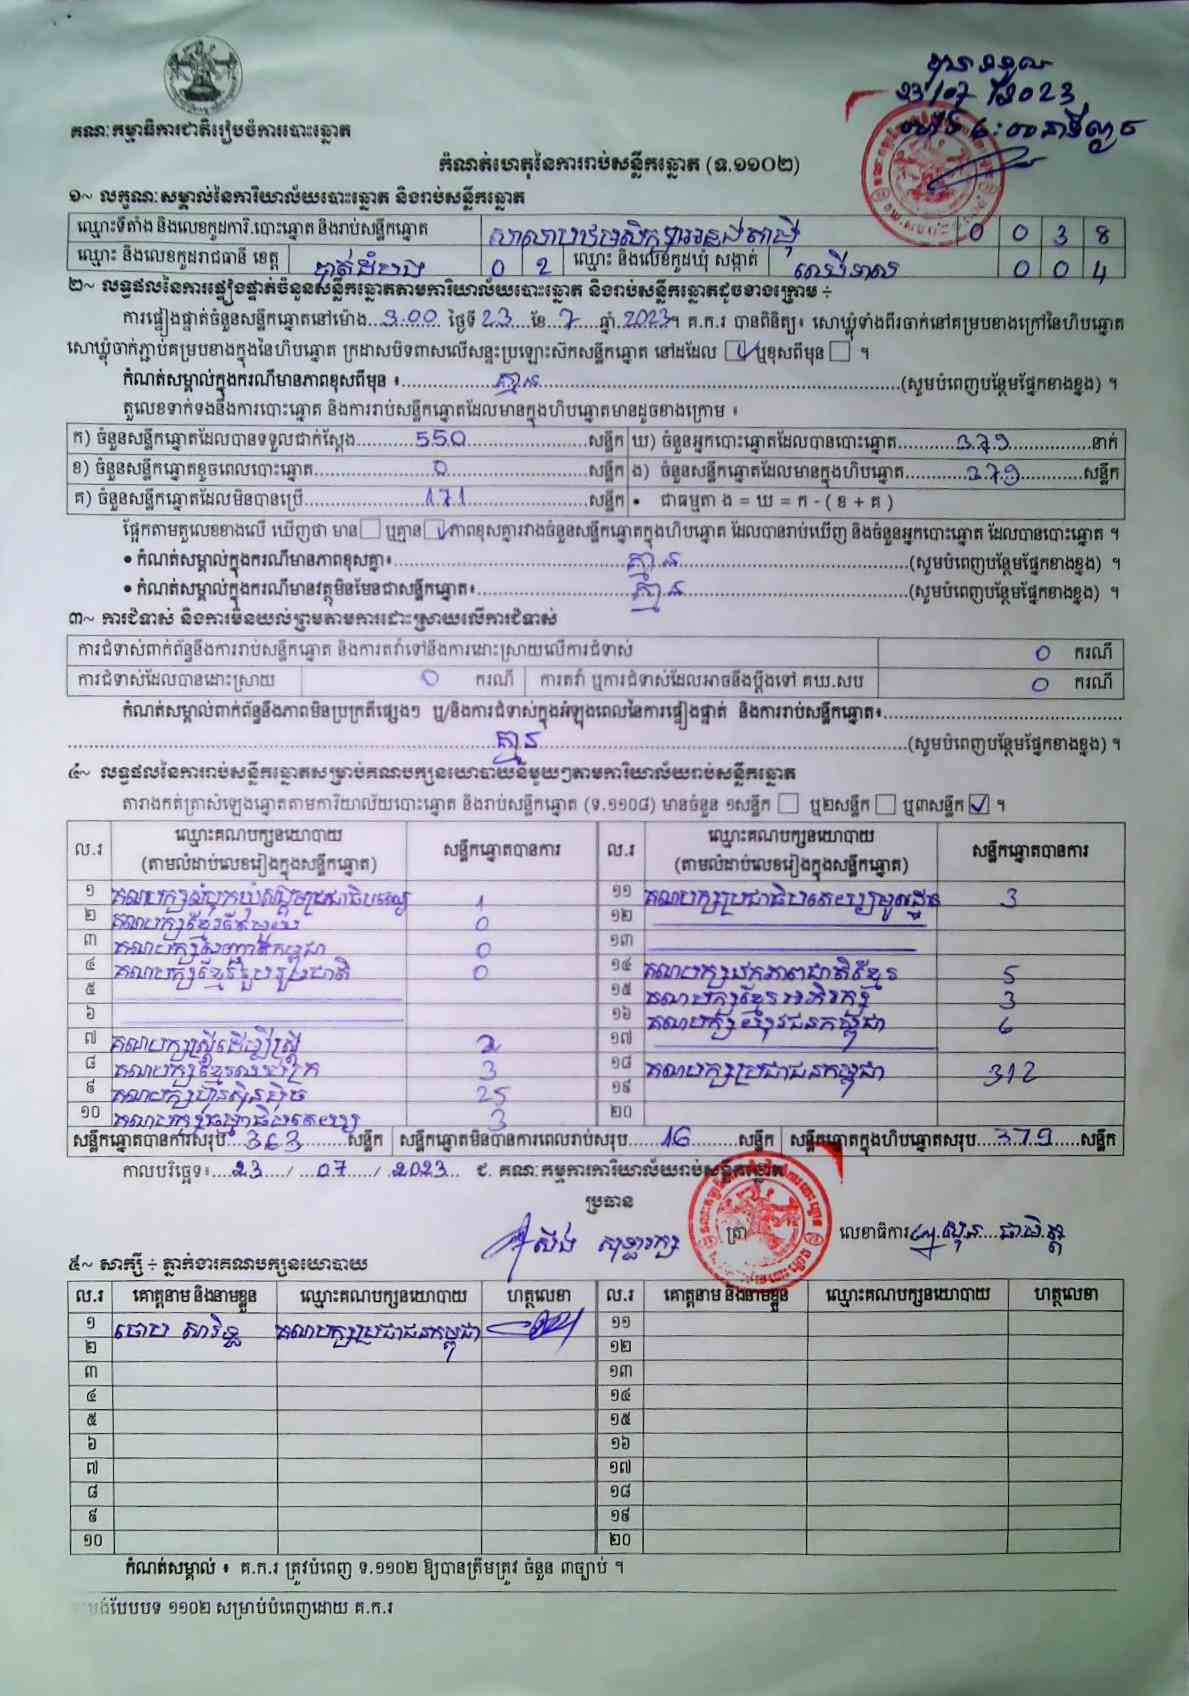 បានទទួល
23/07 ឆ្នាំ2023
គណៈកម្មាធិការជាតិរៀបចំការបោះឆ្នោត
កំណត់ហេតុនៃការរាប់សន្លឹកឆ្នោត (ទ.១១០២)
១~ លក្ខណៈសម្គាល់នៃការិយាល័យបោះឆ្នោត និងរាប់សន្លឹកឆ្នោត
ឈ្មោះទីតាំង និងលេខកូដការិ.បោះឆ្នោត និងរាប់សន្លឹកឆ្នោត សាលាបឋមសិក្សា 0 0 3 8
ឈ្មោះ និងលេខកូដរាជធានី ខេត្ត បាត់ដំបង 0 2 ឈ្មោះ និងលេខកូដឃុំ សង្កាត់ 0 0 4
២~ លទ្ធផលនៃការផ្ទៀងផ្ទាត់ចំនួនសន្លឹកឆ្នោតតាមការិយាល័យបោះឆ្នោត និងរាប់សន្លឹកឆ្នោតដូចខាងក្រោម ÷
ការផ្ទៀងផ្ទាត់ចំនួនសន្លឹកឆ្នោតនៅម៉ោង...3:00 ថ្ងៃទី 23....ខែ..7....ឆ្នាំ.2023។ គ.ក.រ បានពិនិត្យ៖ សោឃ្លុំទាំងពីរចាក់នៅគម្របខាងក្រៅនៃហិបឆ្នោត
សោឃ្លុំចាក់ភ្ជាប់គម្របខាងក្នុងនៃហិបឆ្នោត ក្រដាសបិទពាសលើសន្ទះប្រឡោះស៊កសន្លឹកឆ្នោត នៅដដែល ☑ ឬខុសពីមុន ☐ ។
កំណត់សម្គាល់ក្នុងករណីមានភាពខុសពីមុន ៖ គ្មាន (សូមបំពេញបន្ថែមផ្នែកខាងខ្នង) ។
តួលេខទាក់ទងនឹងការបោះឆ្នោត និងការរាប់សន្លឹកឆ្នោតដែលមានក្នុងហិបឆ្នោតមានដូចខាងក្រោម ៖
ក) ចំនួនសន្លឹកឆ្នោតដែលបានទទួលជាក់ស្តែង 550 សន្លឹក ឃ) ចំនួនអ្នកបោះឆ្នោតដែលបានបោះឆ្នោត 379 នាក់
ខ) ចំនួនសន្លឹកឆ្នោតខូចពេលបោះឆ្នោត 0 សន្លឹក ង) ចំនួនសន្លឹកឆ្នោតដែលមានក្នុងហិបឆ្នោត 379 សន្លឹក
គ) ចំនួនសន្លឹកឆ្នោតដែលមិនបានប្រើ 171 សន្លឹក • ជាធម្មតា ង = ឃ = ក - ( ខ + គ )
ផ្អែកតាមតួលេខខាងលើ ឃើញថា មាន ☐ ឬគ្មាន ☑ ភាពខុសគ្នារវាងចំនួនសន្លឹកឆ្នោតក្នុងហិបឆ្នោត ដែលបានរាប់ឃើញ និងចំនួនអ្នកបោះឆ្នោត ដែលបានបោះឆ្នោត ។
• កំណត់សម្គាល់ក្នុងករណីមានភាពខុសគ្នា៖ គ្មាន (សូមបំពេញបន្ថែមផ្នែកខាងខ្នង) ។
• កំណត់សម្គាល់ក្នុងករណីមានវត្ថុមិនមែនជាសន្លឹកឆ្នោត៖ គ្មាន (សូមបំពេញបន្ថែមផ្នែកខាងខ្នង) ។
៣~ ការជំទាស់ និងការមិនយល់ព្រមតាមការដោះស្រាយលើការជំទាស់
ការជំទាស់ពាក់ព័ន្ធនឹងការរាប់សន្លឹកឆ្នោត និងការតវ៉ាទៅនឹងការដោះស្រាយលើការជំទាស់ 0 ករណី
ការជំទាស់ដែលបានដោះស្រាយ 0 ករណី ការតវ៉ា ឬការជំទាស់ដែលអាចនឹងប្តឹងទៅ គឃ.សប 0 ករណី
កំណត់សម្គាល់ពាក់ព័ន្ធនឹងភាពមិនប្រក្រតីផ្សេងៗ ឬ/និងការជំទាស់ក្នុងអំឡុងពេលនៃការផ្ទៀងផ្ទាត់ និងការរាប់សន្លឹកឆ្នោត៖
គ្មាន (សូមបំពេញបន្ថែមផ្នែកខាងខ្នង) ។
៤~ លទ្ធផលនៃការរាប់សន្លឹកឆ្នោតសម្រាប់គណបក្សនយោបាយនីមួយៗតាមការិយាល័យរាប់សន្លឹកឆ្នោត
តារាងកត់ត្រាសំឡេងឆ្នោតតាមការិយាល័យបោះឆ្នោត និងរាប់សន្លឹកឆ្នោត (ទ.១១០៨) មានចំនួន ១សន្លឹក ☐ ឬ២សន្លឹក ☐ ឬ៣សន្លឹក ☑ ។
ល.រ ឈ្មោះគណបក្សនយោបាយ (តាមលំដាប់លេខរៀងក្នុងសន្លឹកឆ្នោត) សន្លឹកឆ្នោតបានការ ល.រ ឈ្មោះគណបក្សនយោបាយ (តាមលំដាប់លេខរៀងក្នុងសន្លឹកឆ្នោត) សន្លឹកឆ្នោតបានការ
១ គណបក្សសំបុកឃ្មុំសង្គមប្រជាធិបតេយ្យ 1 ១១ គណបក្សប្រជាធិបតេយ្យមូលដ្ឋាន 3
២ គណបក្សខ្មែរ 0 ១២
៣ គណបក្សសញ្ជាតិកម្ពុជា 0 ១៣
៤ គណបក្សខ្មែររួបរួមជាតិ 0 ១៤ គណបក្សឯកភាពជាតិខ្មែរ 5
៥ ១៥ គណបក្សខ្មែរអភិរក្ស 3
៦ ១៦ គណបក្សយុវជនកម្ពុជា 6
៧ គណបក្សស្ត្រីដើម្បីស្ត្រី 2 ១៧
៨ គណបក្សខ្មែរឈប់ក្រ 3 ១៨ គណបក្សប្រជាជនកម្ពុជា 312
៩ គណបក្សហ្វ៊ុនស៊ិនប៉ិច 25 ១៩
១០ គណបក្សធម្មាធិបតេយ្យ 3 ២០
សន្លឹកឆ្នោតបានការសរុប 363 សន្លឹក សន្លឹកឆ្នោតមិនបានការពេលរាប់សរុប 16 សន្លឹក សន្លឹកឆ្នោតក្នុងហិបឆ្នោតសរុប 379 សន្លឹក
កាលបរិច្ឆេទ៖ 23 / 07 / 2023 ជ. គណៈកម្មការការិយាល័យរាប់សន្លឹកឆ្នោត
ប្រធាន
ត្រា
លេខាធិការ
៥~ សាក្សី ÷ ភ្នាក់ងារគណបក្សនយោបាយ
ល.រ គោត្តនាម និងនាមខ្លួន ឈ្មោះគណបក្សនយោបាយ ហត្ថលេខា ល.រ គោត្តនាម និងនាមខ្លួន ឈ្មោះគណបក្សនយោបាយ ហត្ថលេខា
១ គណបក្សប្រជាជនកម្ពុជា ១១
២ ១២
៣ ១៣
៤ ១៤
៥ ១៥
៦ ១៦
៧ ១៧
៨ ១៨
៩ ១៩
១០ ២០
កំណត់សម្គាល់ ៖ គ.ក.រ ត្រូវបំពេញ ទ.១១០២ ឱ្យបានត្រឹមត្រូវ ចំនួន ៣ច្បាប់ ។
បែបបទ ១១០២ សម្រាប់បំពេញដោយ គ.ក.រ